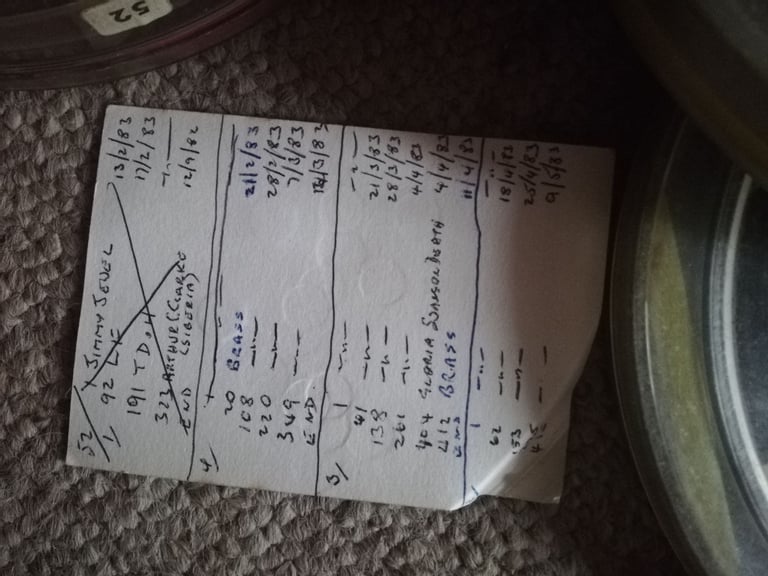 52
52/ 1 JIMMY JEWEL 13/2/83
1 92 L/E 17/2/83
191 T.D.4 -"-
323 ARTHUR C. CLARKE 12/9/82
END (SIBERIA)
20 BRASS -"-
108 -"- 21/2/83
220 -"- 28/2/83
349 -"- 7/3/83
END 14/3/83
3/ 1 -"- -"-
41 -"- 21/3/83
138 -"- 28/3/83
261 -"- 4/4/83
404 GLORIA SWANSON DEATH 4/4/83
412 BRASS 11/4/83
END
1 -"- -"-
62 -"- 18/4/83
153 -"- 25/4/83
-"- 9/5/83